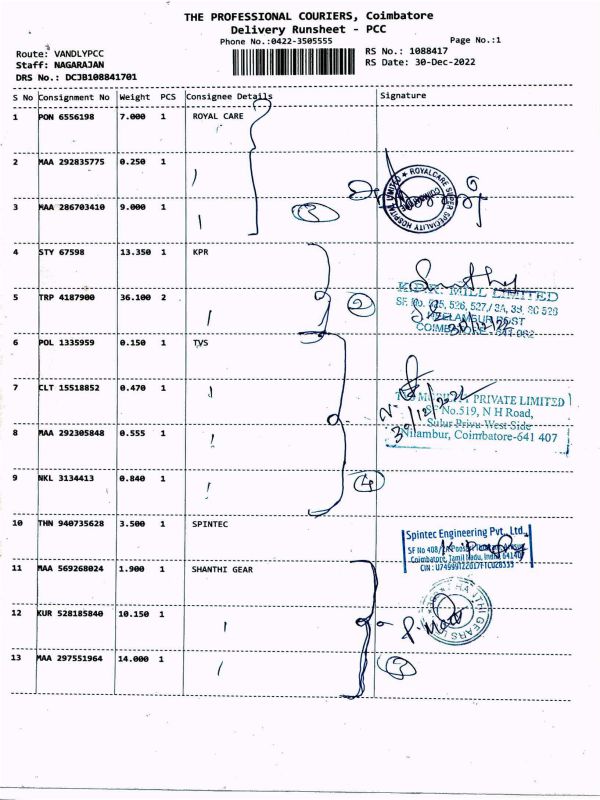 THE PROFESSIONAL COURIERS, Coimbatore
Delivery Runsheet - PCC
Phone No.:0422-3505555
Page No.:1
Route: VANDLYPCC
RS No.: 1088417
Staff: NAGARAJAN
RS Date: 30-Dec-2022
DRS No.: DCJB108841701
S No Consignment No Weight PCS Consignee Details Signature
1 PON 6556198 7.000 1 ROYAL CARE
2 MAA 292835775 0.250 1
3 MAA 286703410 9.000 1
ROYALCARE SUPER SPECIALITY HOSPITAL LIMITED
4 STY 67598 13.350 1 KPR
K.P.R. MILL LIMITED
5 TRP 4187900 36.100 2
2
6 POL 1335959 0.150 1 TVS
30/12/22
7 CLT 15518852 0.470 1
30/12/2022
PRIVATE LIMITED
SF No.519, N H Road,
Sulur Privu West Side
8 MAA 292305848 0.555 1
Nilambur, Coimbatore-641 407
9 NKL 3134413 0.840 1
4
10 THN 940735628 3.500 1 SPINTEC
Spintec Engineering Pvt. Ltd.,
SF No 408/
Coimbatore, Tamil Nadu, India
11 MAA 569268024 1.900 1 SHANTHI GEAR
SHANTHI GEARS
12 KUR 528185840 10.150 1
13 MAA 297551964 14.000 1